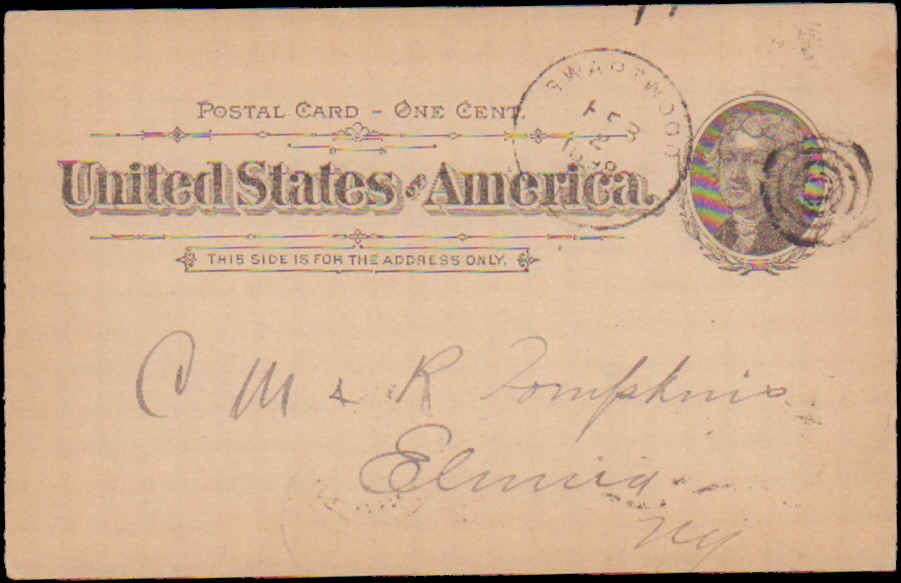 POSTAL CARD - ONE CENT.
United States of America.
THIS SIDE IS FOR THE ADDRESS ONLY.
SWARTWOOD
FEB
2
C M & R Tompkins
Elmira
NY